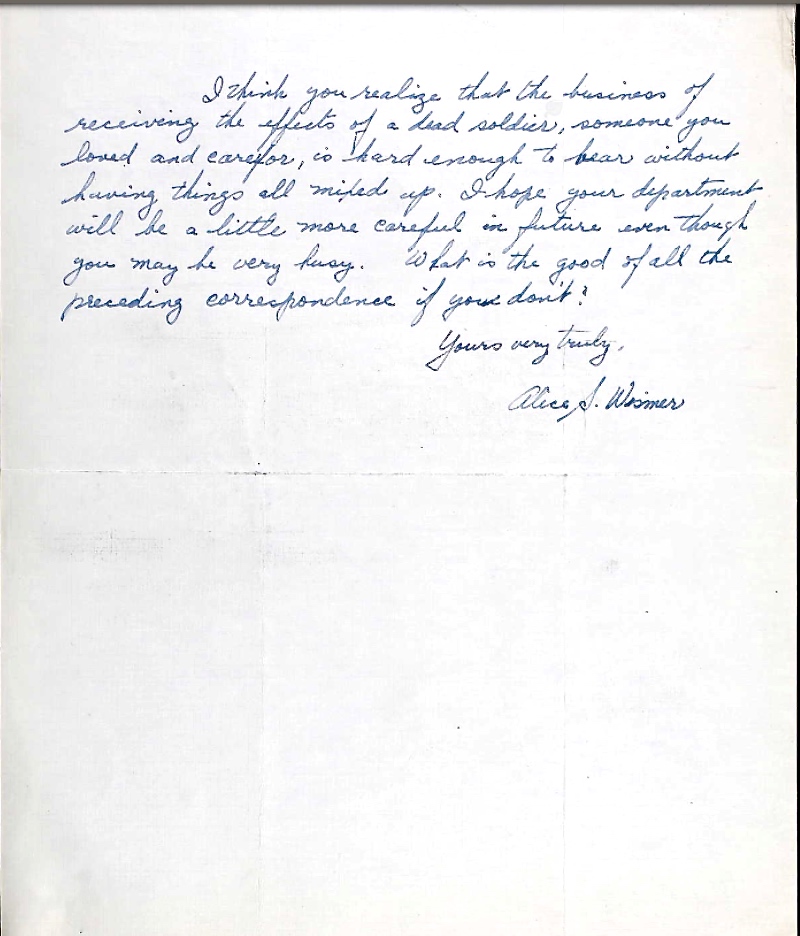 I think you realize that the business of
receiving the effects of a dead soldier, someone you
loved and care for, is hard enough to bear without
having things all mixed up. I hope your department
will be a little more careful in future even though
you may be very busy. What is the good of all the
preceding correspondence if you don't?
Yours very truly,
Alice S. Wismer